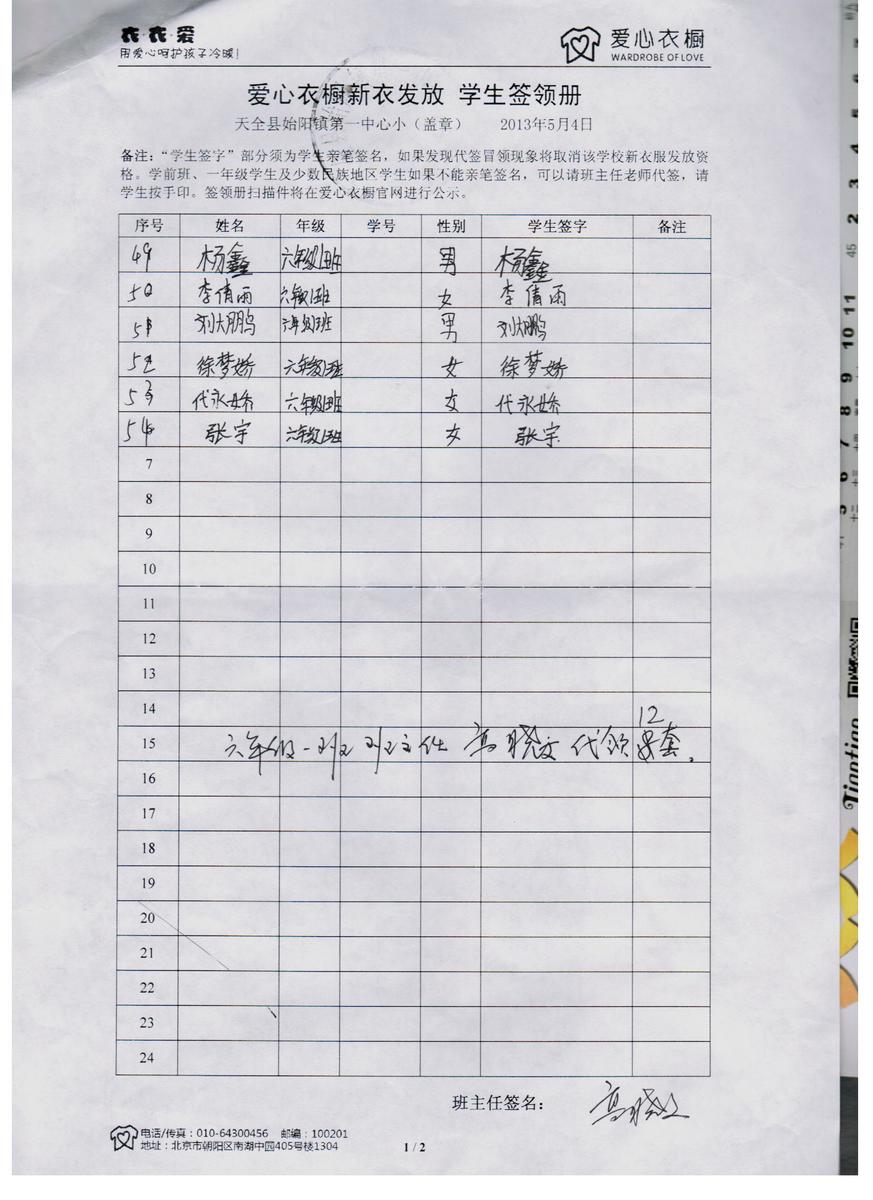 衣·衣·爱
用爱心呵护孩子冷暖!
爱心衣橱
WARDROBE OF LOVE
爱心衣橱新衣发放 学生签领册
天全县始阳镇第一中心小（盖章） 2013年5月4日
备注：“学生签字”部分须为学生亲笔签名，如果发现代签冒领现象将取消该学校新衣服发放资
格。学前班、一年级学生及少数民族地区学生如果不能亲笔签名，可以请班主任老师代签，请
学生按手印。签领册扫描件将在爱心衣橱官网进行公示。
序号 姓名 年级 学号 性别 学生签字 备注
49 杨鑫 六年级1班 男 杨鑫
50 李倩雨 六年级1班 女 李倩雨
51 刘大鹏 六年级1班 男 刘大鹏
52 徐梦娇 六年级1班 女 徐梦娇
53 代永娇 六年级1班 女 代永娇
54 张宇 六年级1班 女 张宇
7
8
9
10
11
12
13
14
15 六年级一班 班主任 高晓文 代领 12套.
16
17
18
19
20
21
22
23
24
班主任签名： 高晓文
电话/传真：010-64300456 邮编：100201
地址：北京市朝阳区南湖中园405号楼1304
1 / 2
Tiantian